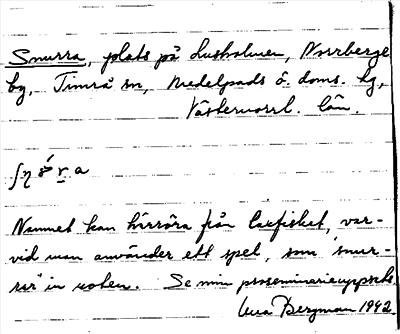 Snurra, plats på Lusholmen, Norrberge
by, Timrå sn, Medelpads ö. doms. hg,
Västernorrl. län.
Namnet kan härröra från laxfisket, var-
vid man använder ett spel, som 'snur-
rar' in noten. Se min proseminarieuppsats.
Bergman 1942.